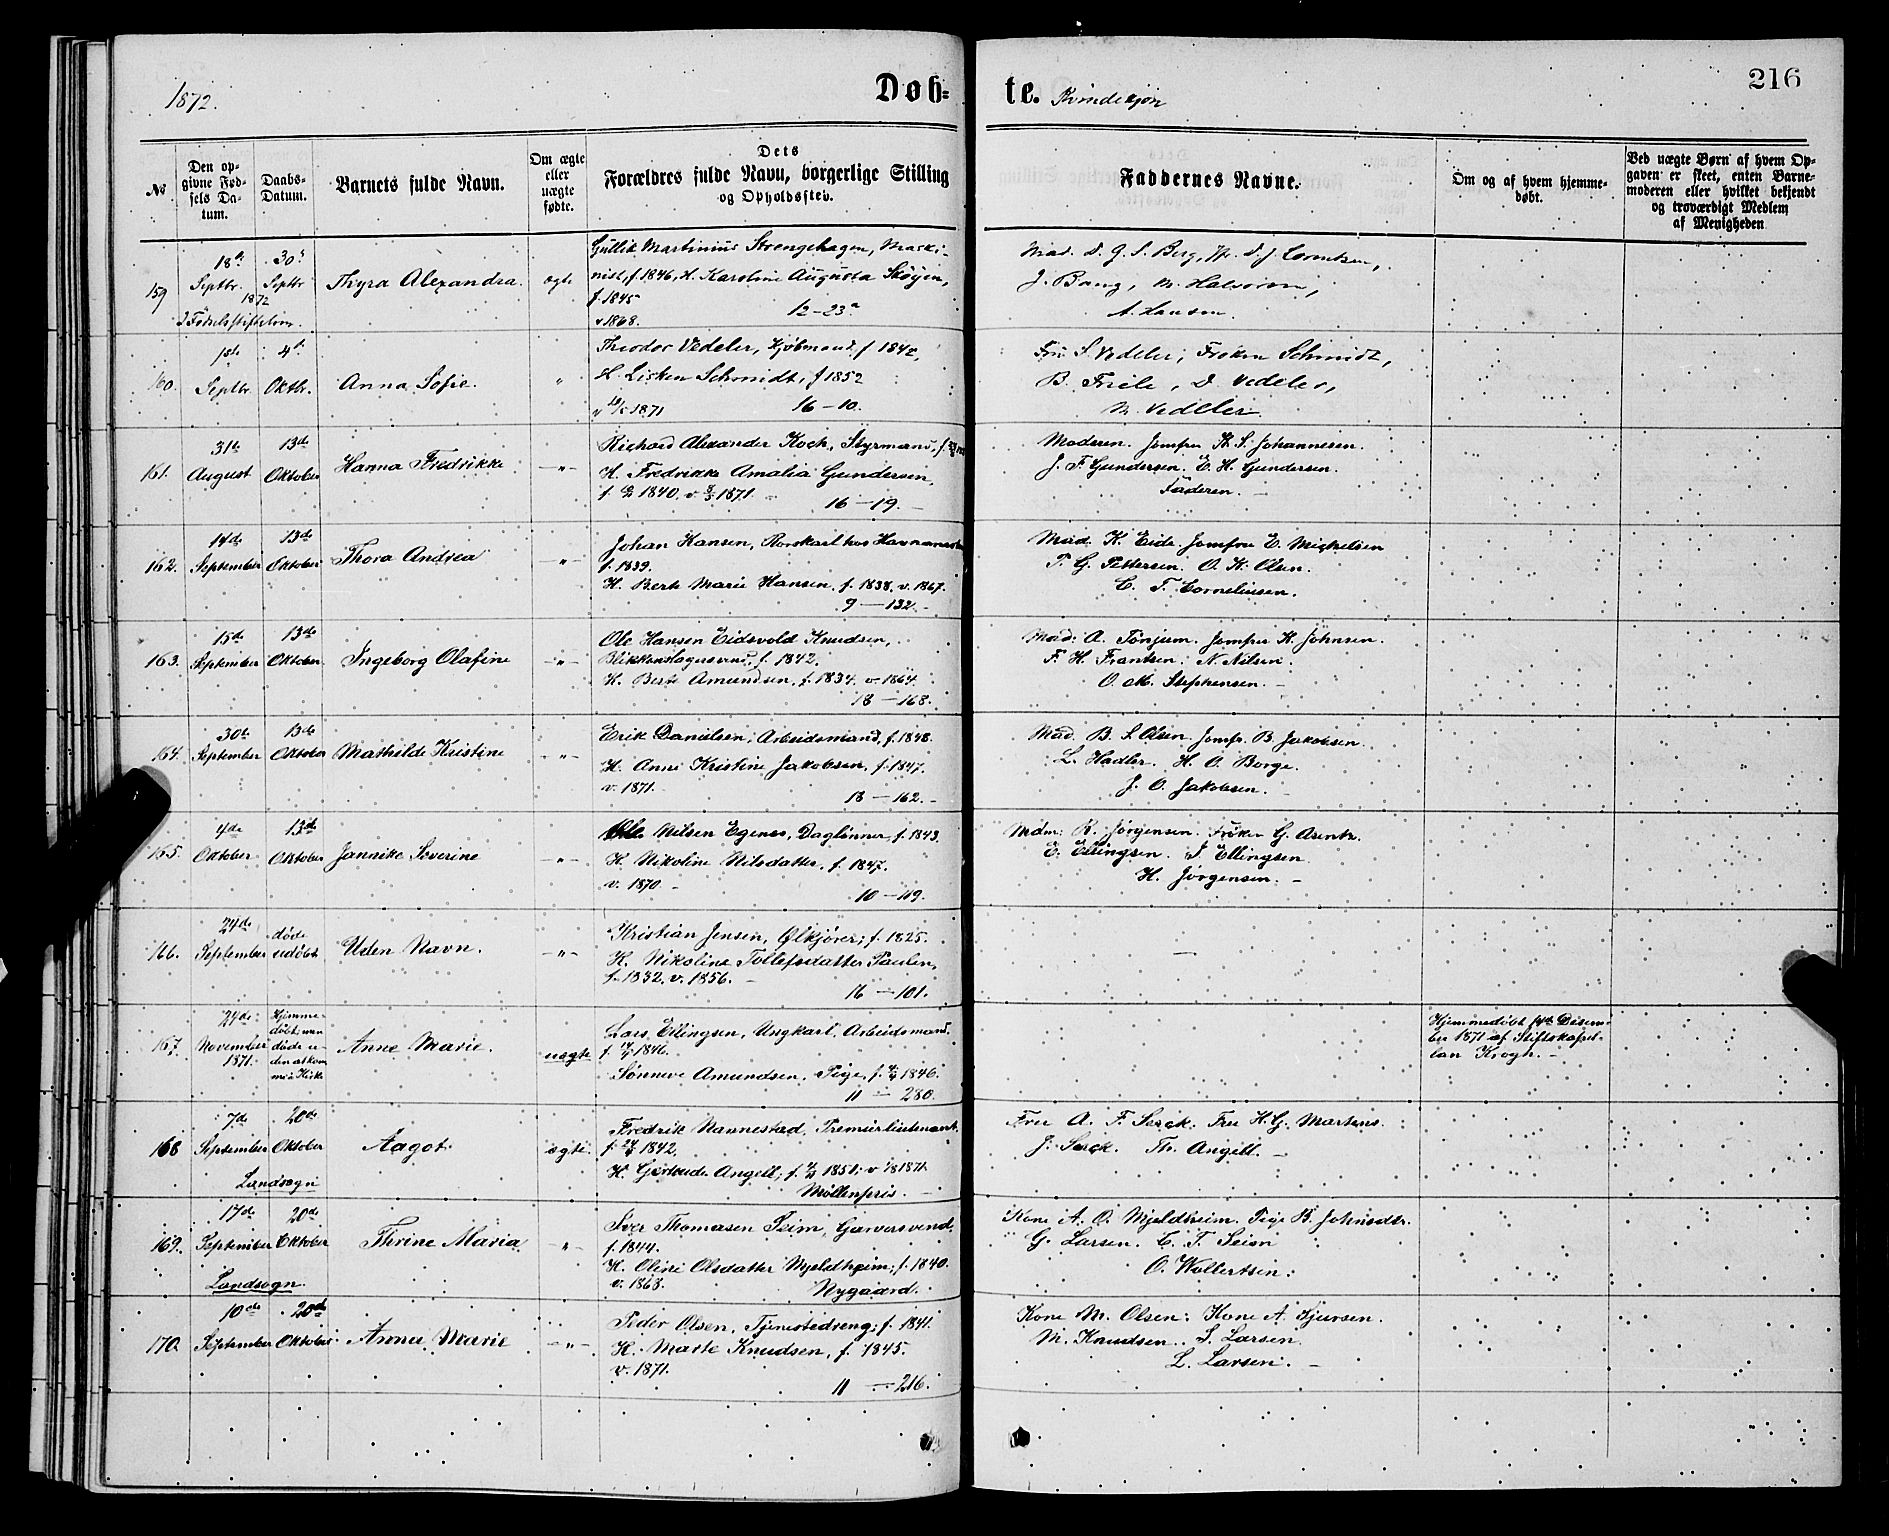 1872.
Døb-
te. Kvindekjøn
216
No
Den op-
givne Fød-
sels Da-
tum.
Daabs-
Datum.
Barnets fulde Navn.
Om ægte
eller
uægte
fødte.
Dets
Forældres fulde Navn, borgerlige Stilling
og Opholdssted.
Faddernes Navne.
Om og af hvem hjemme-
døbt.
Ved uægte Børn af hvem Op-
gaven er skeet, enten Barne-
moderen eller hvilket bekjendt
og troværdigt Medlem
af Menigheden
159
18de Septbr. 1872
I Fødselsstiftelsen.
30te Septbr
Thyra Alexandra
ægte
Gullik Martinius Strengehagen, Maski-
nist, f. 1846, H. Karoline Augusta Skøyen,
f. 1845
v 1868.
12-23a
J. Bang,
A. Larsen.
160.
1ste Septbr.
4de Oktbr.
Anna Sofie.
"
Theodor Vedeler, Kjøbmand, f 1842,
H. Lisken Schmidt, f 1852
1871
16-10.
Fru S. Vedeler, Frøken Schmidt,
B. Friele, D. Vedeler,
M. Vedeler
161.
31te August
13de Oktober
Hanna Fredrikke
-"-
Richard Alexander Koch, Styrmand,
H. Fredrikke Amalia Gundersen,
1840. v. 1871.
16-19.
Moderen. Jomfru K. S. Johannesen.
J. F. Gundersen. E. H. Gundersen.
Faderen.
162.
14de September
13de Oktober
Thora Andrea
-"-
Johan Hansen, Rorskarl hos Havnemester
f. 1839.
H. Berte Marie Hansen, f. 1838, v. 1867.
9-132.
Mad. K. Eide. Jomfru E. Mickelsen
T. G. Pettersen. O. K. Olsen.
C. F. Corneliusen.
163.
15de September
13de Oktober
Ingeborg Olafine
-"-
Ole Hansen Eidsvold Knudsen,
Blikkenslagersvend, f. 1842.
H. Berte Amundsen, f. 1834, v. 1864.
18-168.
Mad: A. Tønjum. Jomfru K. Johnsen.
F. H. Frantsen. N. Nilsen.
O. M. Stephensen.
164.
30te September
13de Oktober
Mathilde Kristine
-"-
Erik Danielsen, Arbeidsmand, f. 1848.
H. Anne Kristine Jakobsen, f. 1847.
v. 1871.
18-162.
Mad. B. S. Olsen. Jomfr. B. Jakobsen.
L. Hadler. H. O. Borge.
J. O. Jakobsen.
165.
4de Oktober
13de Oktober
Jannike Severine
-"-
Ole Nilsen Egenes, Dagl­ønner, f. 1843
H. Nikoline Nilsdatter, f. 1847.
v. 1870
10-49.
Mdm: R. Jørgensen. Frøken G. Arentz.
E. Ellingsen. J. Ellingsen
H. Jørgensen.
166.
24de September
døde udøbt
Uden Navn.
-"-
Kristian Jensen, Ølkjører; f. 1825.
H. Nikoline Tollefsdatter Paulen,
f. 1832. v. 1856.
16-101.
167
24de November 1871.
Hjemme-
døbt, men
døde u-
den at kom-
me i Kirke
Anne Marie.
uægte
Lars Ellingsen, Ungkarl, Arbeidsmand.
1846.
Sønneve Amundsen, Pige, 1846.
11-280.
Hjemmedøbt 14de Desem-
ber 1871 af Stiftskapel-
lan Krogh.
168
7de September
20de Oktober
Landsogn
Aagot
ægte.
Fredrik Nannestad, Premierlieutenant.
1842,
H. Gjertrude Angell; 1851; v 1871
Møllenpris.
Fru A. F. Serck. Fru H. G. Martens.
J. Serck. Th. Angell.
169.
17de September
20de Oktober
Landsogn.
Thrine Maria
-"-
Iver Thomasen Seim, Garversvend.
f. 1844.
H. Oline Olsdatter Mjeldheim; f. 1840.
v. 1868.
Nygaard.
Kone A. O. Mjeldheim. Pige B. Johnsdtr.
G. Larsen. C. T. Seim
O. Wollertsen.
170.
10de September
20de Oktober.
Anna Marie
-"-
Peder Olsen, Tjenestedreng; f. 1841.
H. Marte Knudsen, f. 1845.
v. 1871.
11-216.
Kone M. Olsen: Kone A. Hjursen.
M. Knudsen. S. Larsen
L. Larsen.